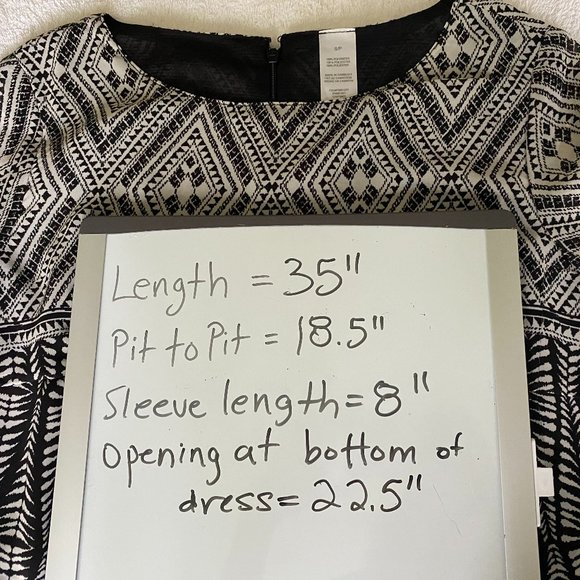 S/P
Length = 35"
Pit to Pit = 18.5"
Sleeve length = 8"
Opening at bottom of
dress = 22.5"